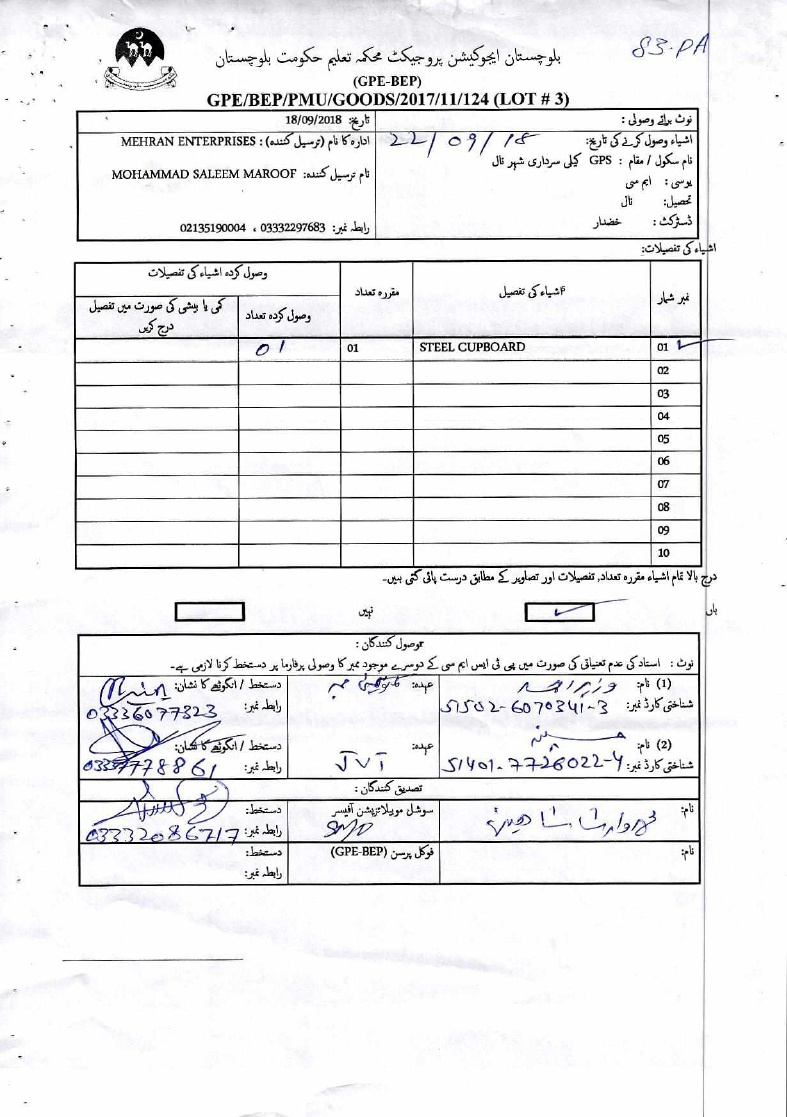 83-PA
بلوچستان ایجوکیشن پروجیکٹ محکمہ تعلیم حکومت بلوچستان
(GPE-BEP)
GPE/BEP/PMU/GOODS/2017/11/124 (LOT # 3)
نوٹ برائے وصولی :
اشیاء وصول کرنے کی تاریخ: 22/09/18
نام سکول / مقام : GPS کیلی سرداری شہر نال
یوسی : ایم سی
تحصیل: نال
ڈسٹرکٹ : خضدار
تاریخ: 18/09/2018
ادارہ کا نام (ترسیل کنندہ) : MEHRAN ENTERPRISES
نام ترسیل کنندہ: MOHAMMAD SALEEM MAROOF
رابطہ نمبر: 03332297683 ، 02135190004
اشیاء کی تفصیلات:
نمبر شمار اشیاء کی تفصیل مقررہ تعداد وصول کردہ اشیاء کی تفصیلات
وصول کردہ تعداد کمی یا بیشی کی صورت میں تفصیل درج کریں
01 STEEL CUPBOARD 01 01
02
03
04
05
06
07
08
09
10
درج بالا تمام اشیاء مقررہ تعداد, تفصیلات اور تصاویر کے مطابق درست پائی گئی ہیں۔
ہاں نہیں
وصول کنندگان :
نوٹ : استاد کی عدم تعیناتی کی صورت میں پی ٹی ایس ایم سی کے دوسرے موجود ممبر کا وصولی پرفارما پر دستخط کرنا لازمی ہے۔
(1) نام: عہدہ: دستخط / انگوٹھے کا نشان:
شناختی کارڈ نمبر: 51502-6070341-3 رابطہ نمبر: 03336077323
(2) نام: عہدہ: JVT دستخط / انگوٹھے کا نشان:
شناختی کارڈ نمبر: 51401-7726022-4 رابطہ نمبر:
تصدیق کنندگان :
نام: سوشل موبیلائزیشن آفیسر دستخط:
SMO رابطہ نمبر: 03332086717
نام: فوکل پرسن (GPE-BEP) دستخط:
رابطہ نمبر: